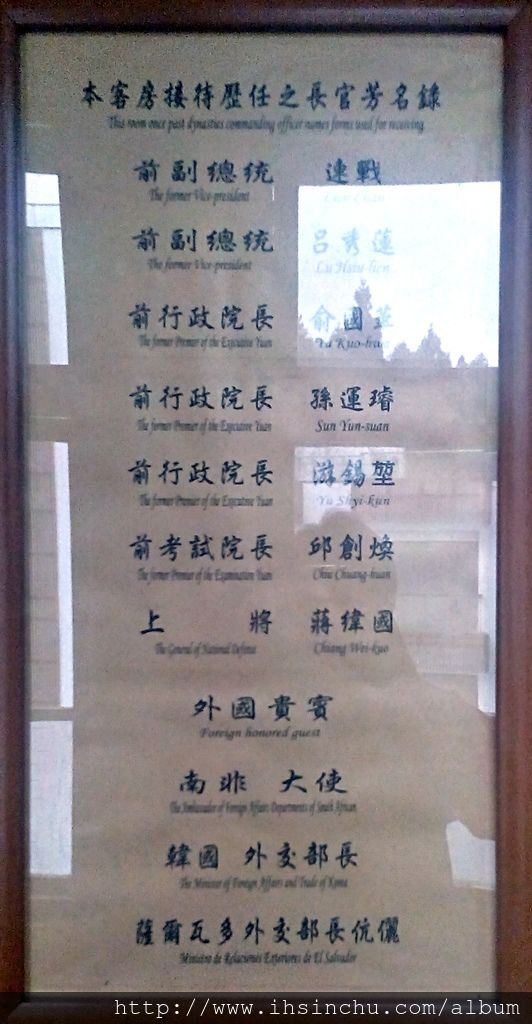 本客房接待歷任之長官芳名錄
This room once past dynasties commanding officer names forms used for receiving
前副總統 連戰
The former Vice-president Lien Chan
前副總統 呂秀蓮
The former Vice-president Lu Hsiu-lien
前行政院長 俞國華
The former Premer of the Executive Yuan Yu Kuo-hua
前行政院長 孫運璿
The former Premer of the Executive Yuan Sun Yun-suan
前行政院長 游錫堃
The former Premer of the Executive Yuan Yu Shyi-kun
前考試院長 邱創煥
The former Premer of the Examination Yuan Chiu Chuang-huan
上將 蔣緯國
The General of National Defense Chiang Wei-kuo
外國貴賓
Foreign honored guest
南非 大使
The Ambassador of Foreign Affairs Departments of South African
韓國 外交部長
The Minister of Foreign Affairs and Trade of Korea
薩爾瓦多外交部長伉儷
Ministro de Relaciones Exteriores de El Salvador
http://www.ihsinchu.com/album